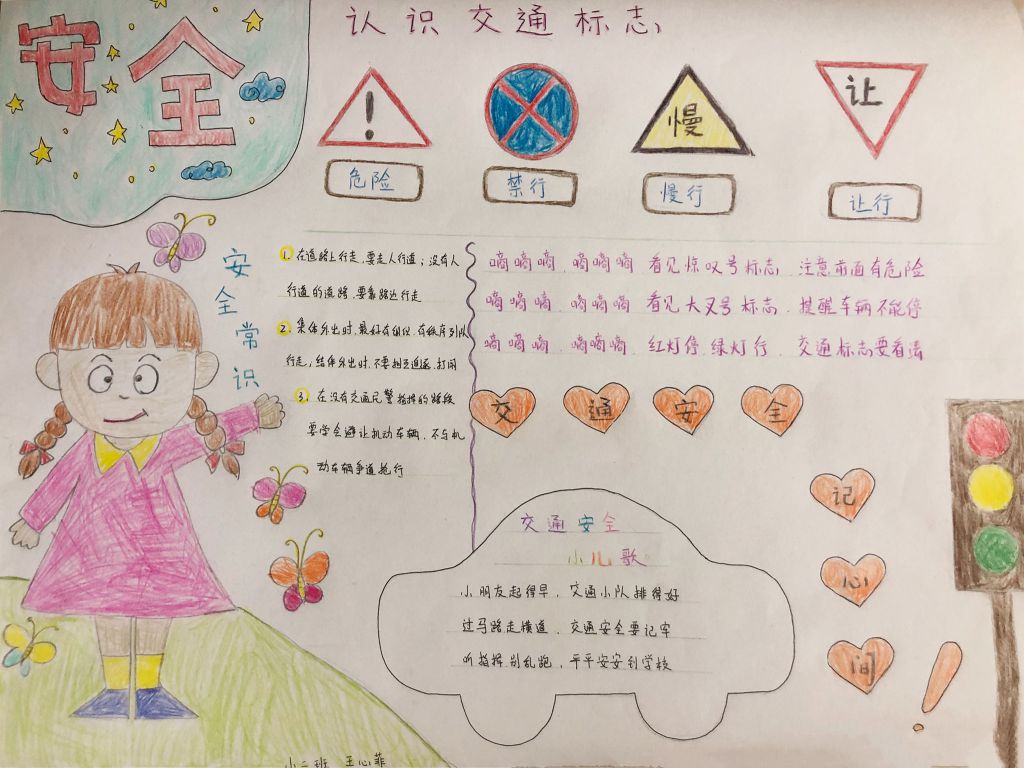 安全
认识交通标志
!
慢
让
危险
禁行
慢行
让行
安全常识
1. 在道路上行走,要走人行道;没有人
行道的道路,要靠路边行走
2. 集体外出时,最好有组织、有秩序列队
行走;结伴外出时,不要相互追逐、打闹
3. 在没有交通民警指挥的路段
要学会避让机动车辆,不与机
动车辆争道抢行
嘀嘀嘀,嘀嘀嘀 看见惊叹号标志 注意前面有危险
嘀嘀嘀 嘀嘀嘀 看见大叉号标志 提醒车辆不能停
嘀嘀嘀,嘀嘀嘀 红灯停,绿灯行、 交通标志要看清
交通安全
记
心
间
!
交通安全
小儿歌
小朋友起得早、交通小队排得好
过马路走横道、交通安全要记牢
听指挥别乱跑、平平安安到学校
小二班 王心菲